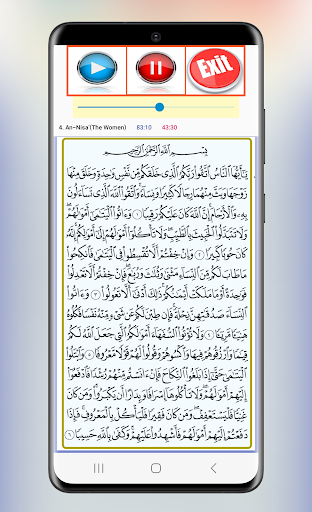 Exit
4. An-Nisa'(The Women) 83:10 43:30
بِسْمِ ٱللَّهِ ٱلرَّحْمَٰنِ ٱلرَّحِيمِ
يَٰٓأَيُّهَا ٱلنَّاسُ ٱتَّقُوا۟ رَبَّكُمُ ٱلَّذِى خَلَقَكُم مِّن نَّفْسٍ وَٰحِدَةٍ وَخَلَقَ مِنْهَا
زَوْجَهَا وَبَثَّ مِنْهُمَا رِجَالًا كَثِيرًا وَنِسَآءً وَٱتَّقُوا۟ ٱللَّهَ ٱلَّذِى تَسَآءَلُونَ
بِهِۦ وَٱلْأَرْحَامَ إِنَّ ٱللَّهَ كَانَ عَلَيْكُمْ رَقِيبًا ١ وَءَاتُوا۟ ٱلْيَتَٰمَىٰٓ أَمْوَٰلَهُمْ
وَلَا تَتَبَدَّلُوا۟ ٱلْخَبِيثَ بِٱلطَّيِّبِ وَلَا تَأْكُلُوٓا۟ أَمْوَٰلَهُمْ إِلَىٰٓ أَمْوَٰلِكُمْ إِنَّهُۥ
كَانَ حُوبًا كَبِيرًا ٢ وَإِنْ خِفْتُمْ أَلَّا تُقْسِطُوا۟ فِى ٱلْيَتَٰمَىٰ فَٱنكِحُوا۟
مَا طَابَ لَكُم مِّنَ ٱلنِّسَآءِ مَثْنَىٰ وَثُلَٰثَ وَرُبَٰعَ فَإِنْ خِفْتُمْ أَلَّا تَعْدِلُوا۟
فَوَٰحِدَةً أَوْ مَا مَلَكَتْ أَيْمَٰنُكُمْ ذَٰلِكَ أَدْنَىٰٓ أَلَّا تَعُولُوا۟ ٣ وَءَاتُوا۟
ٱلنِّسَآءَ صَدُقَٰتِهِنَّ نِحْلَةً فَإِن طِبْنَ لَكُمْ عَن شَىْءٍ مِّنْهُ نَفْسًا فَكُلُوهُ
هَنِيٓـًٔا مَّرِيٓـًٔا ٤ وَلَا تُؤْتُوا۟ ٱلسُّفَهَآءَ أَمْوَٰلَكُمُ ٱلَّتِى جَعَلَ ٱللَّهُ لَكُمْ
قِيَٰمًا وَٱرْزُقُوهُمْ فِيهَا وَٱكْسُوهُمْ وَقُولُوا۟ لَهُمْ قَوْلًا مَّعْرُوفًا ٥ وَٱبْتَلُوا۟
ٱلْيَتَٰمَىٰ حَتَّىٰٓ إِذَا بَلَغُوا۟ ٱلنِّكَاحَ فَإِنْ ءَانَسْتُم مِّنْهُمْ رُشْدًا فَٱدْفَعُوٓا۟
إِلَيْهِمْ أَمْوَٰلَهُمْ وَلَا تَأْكُلُوهَآ إِسْرَافًا وَبِدَارًا أَن يَكْبَرُوا۟ وَمَن كَانَ
غَنِيًّا فَلْيَسْتَعْفِفْ وَمَن كَانَ فَقِيرًا فَلْيَأْكُلْ بِٱلْمَعْرُوفِ فَإِذَا
دَفَعْتُمْ إِلَيْهِمْ أَمْوَٰلَهُمْ فَأَشْهِدُوا۟ عَلَيْهِمْ وَكَفَىٰ بِٱللَّهِ حَسِيبًا ٦